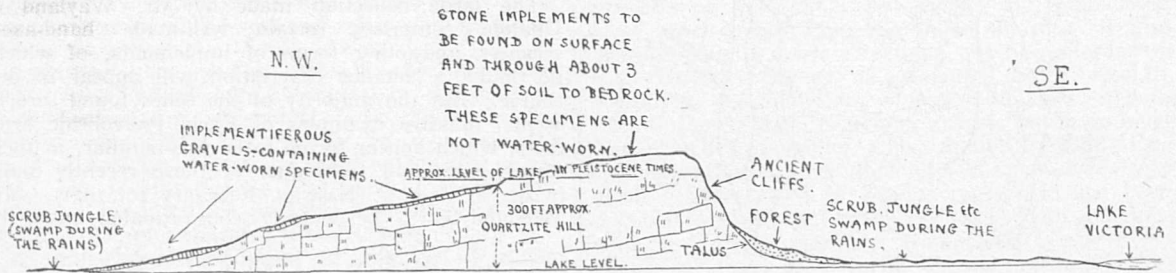 N.W.
STONE IMPLEMENTS TO
BE FOUND ON SURFACE
AND THROUGH ABOUT 3
FEET OF SOIL TO BEDROCK.
THESE SPECIMENS ARE
NOT WATER-WORN.
SE.
IMPLEMENTIFEROUS
GRAVELS-CONTAINING
WATER-WORN SPECIMENS.
APPROX. LEVEL OF LAKE IN PLEISTOCENE TIMES.
ANCIENT
CLIFFS.
SCRUB JUNGLE.
(SWAMP DURING
THE RAINS)
300 FT APPROX.
QUARTZITE HILL
LAKE LEVEL.
TALUS
FOREST
SCRUB, JUNGLE Etc
SWAMP DURING THE
RAINS.
LAKE
VICTORIA